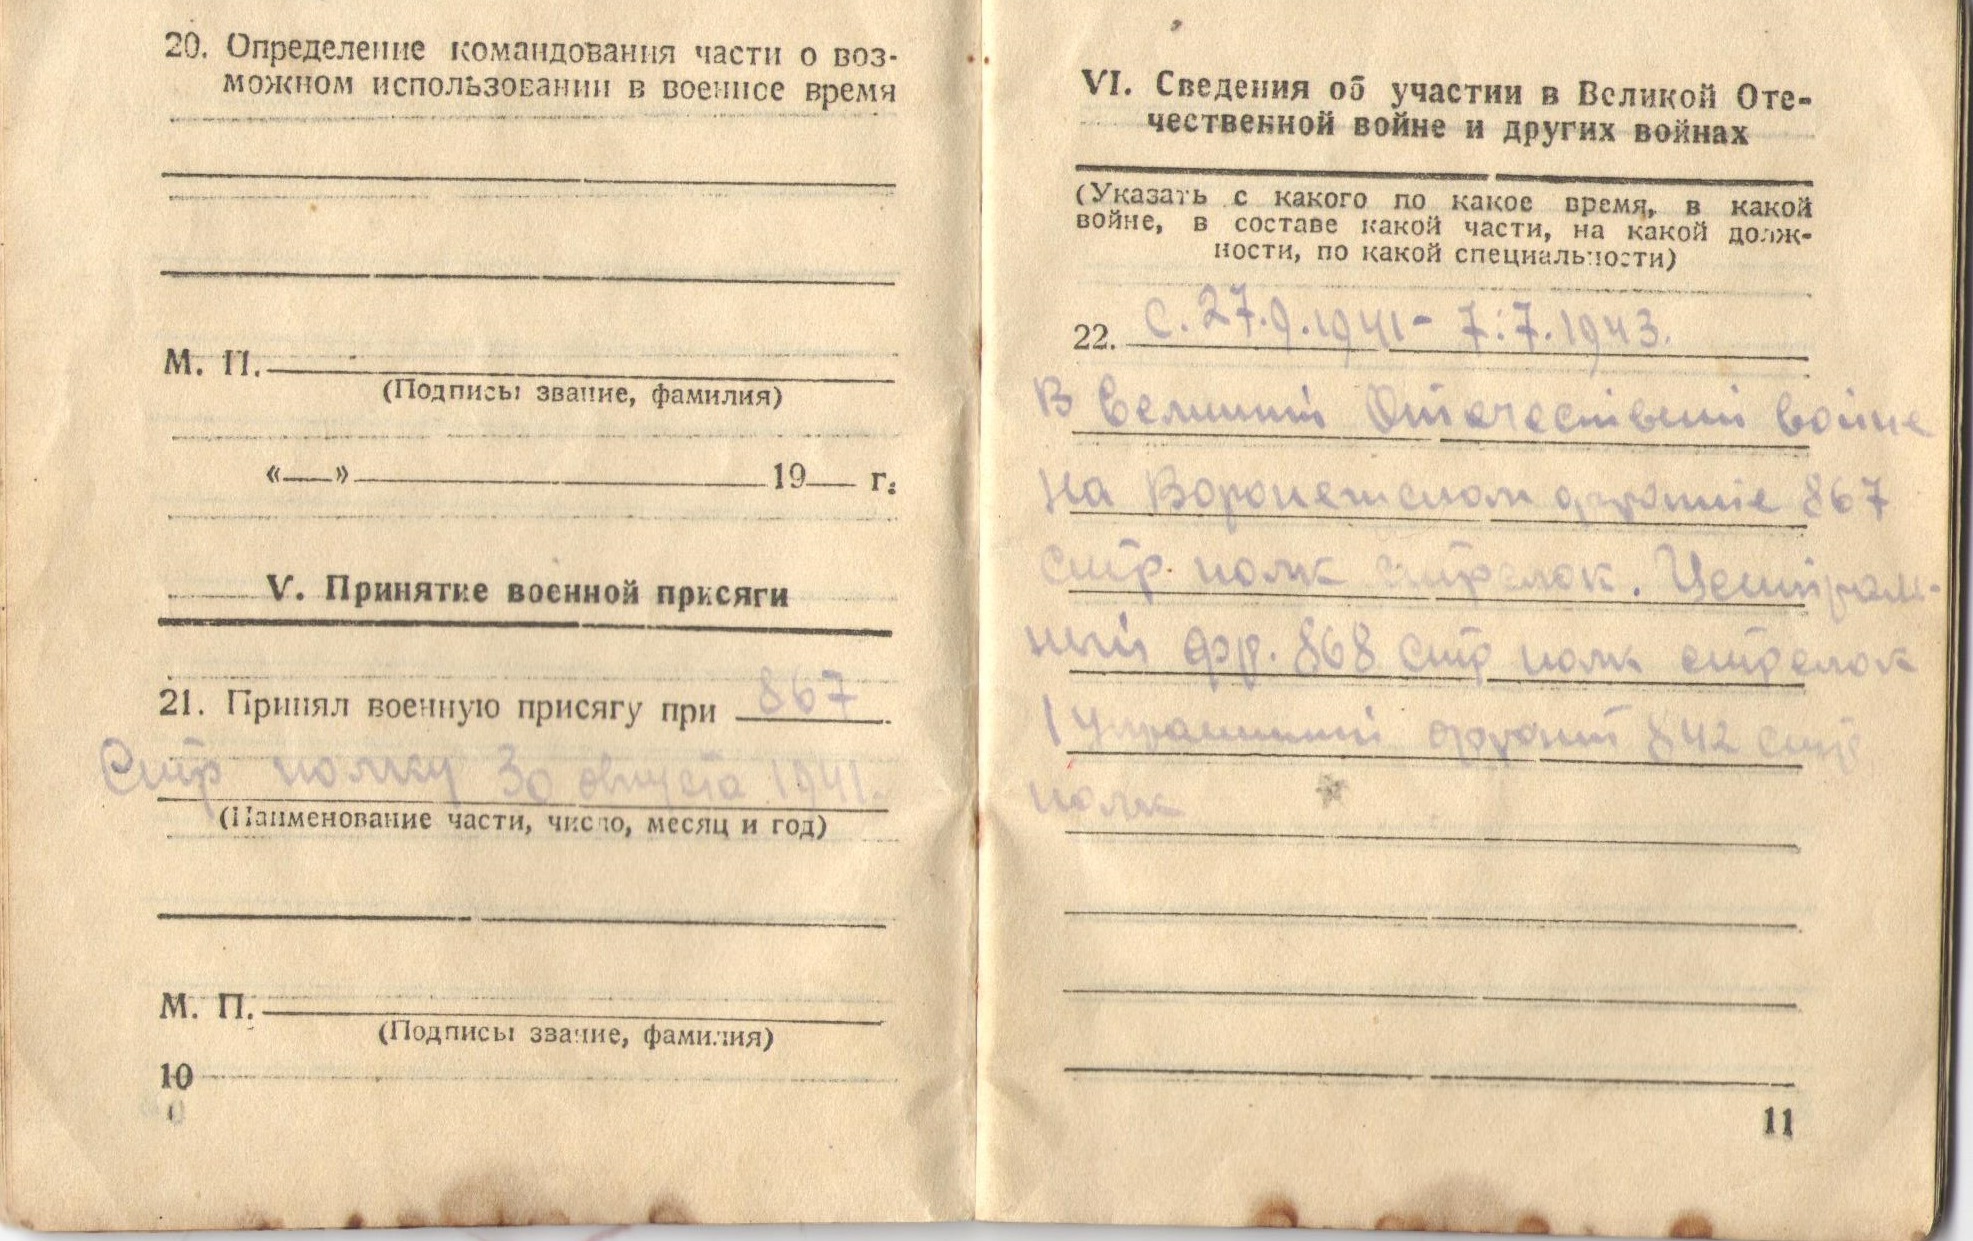 20. Определение командования части о воз-
можном использовании в военное время
М. П.
(Подписы звание, фамилия)
«—» 19— г.
V. Принятие военной присяги
21. Принял военную присягу при 867
Стр полку 30 августа 1941.
(Наименование части, число, месяц и год)
М. П.
(Подписы звание, фамилия)
10
VI. Сведения об участии в Великой Оте-
чественной войне и других войнах
(Указать с какого по какое время, в какой
войне, в составе какой части, на какой долж-
ности, по какой специальности)
22. С. 27.9.1941 - 7.7.1943.
В Великий Отечествений войне
на Воронежском фронте 867
стр. полк стрелок. Централь-
ный фр. 868 стр полк стрелок
1 Украинский фронт 842 стр
полк
11